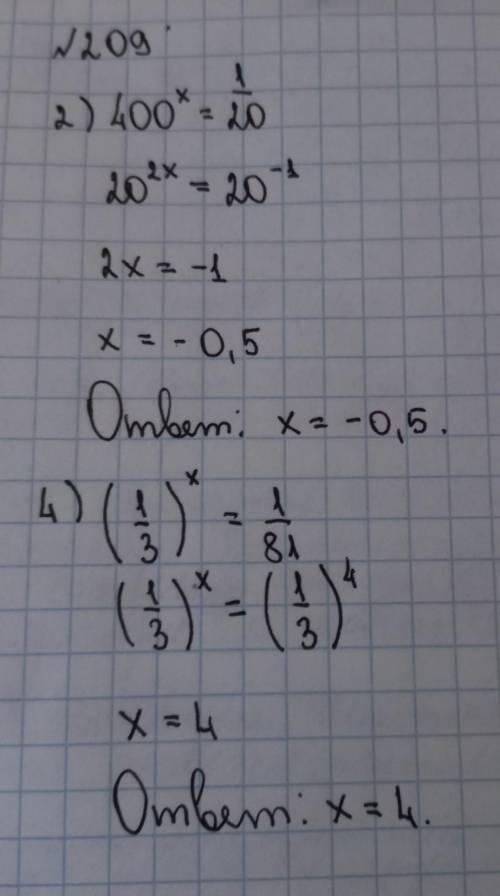 №209
2) 400^x = 1/20
20^2x = 20^-1
2x = -1
x = -0,5
Ответ: x = -0,5.
4) (1/3)^x = 1/81
(1/3)^x = (1/3)^4
x = 4
Ответ: x = 4.